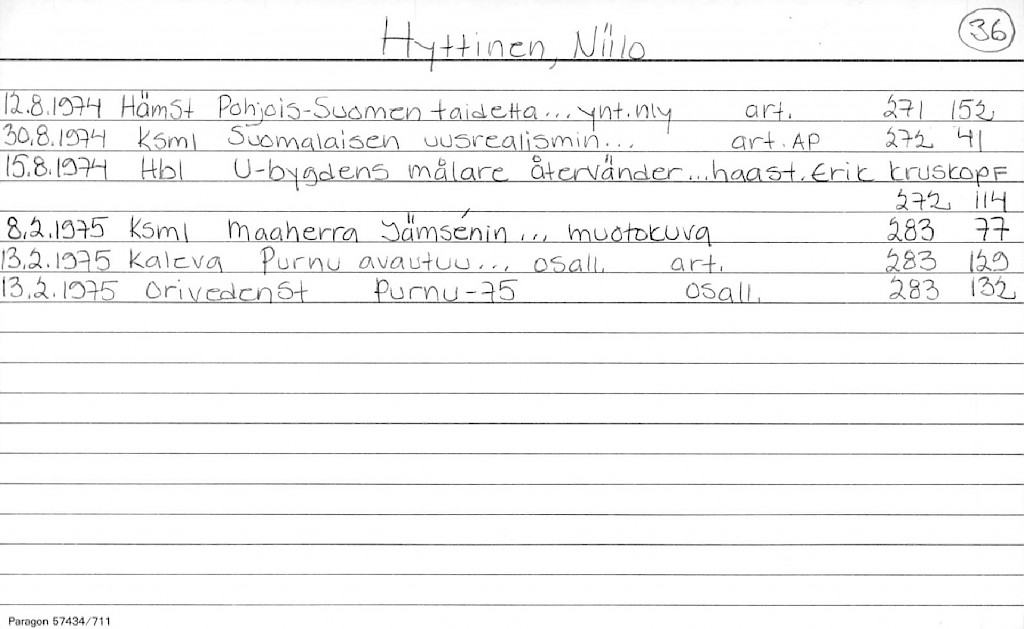 Hyttinen, Niilo 36
12.8.1974 HämSt Pohjois-Suomen taidetta... ynt.nly art. 271 152
30.8.1974 Ksml Suomalaisen uusrealismin... art. AP 272 41
15.8.1974 Hbl U-bygdens målare återvänder... haast. Erik Kruskopf
272 114
8.2.1975 Ksml Maaherra Jämsénin... muotokuva 283 77
13.2.1975 Kaleva Purnu avautuu... osall. art. 283 129
13.2.1975 OrivedenSt Purnu-75 osall. 283 132
Paragon 57434/711